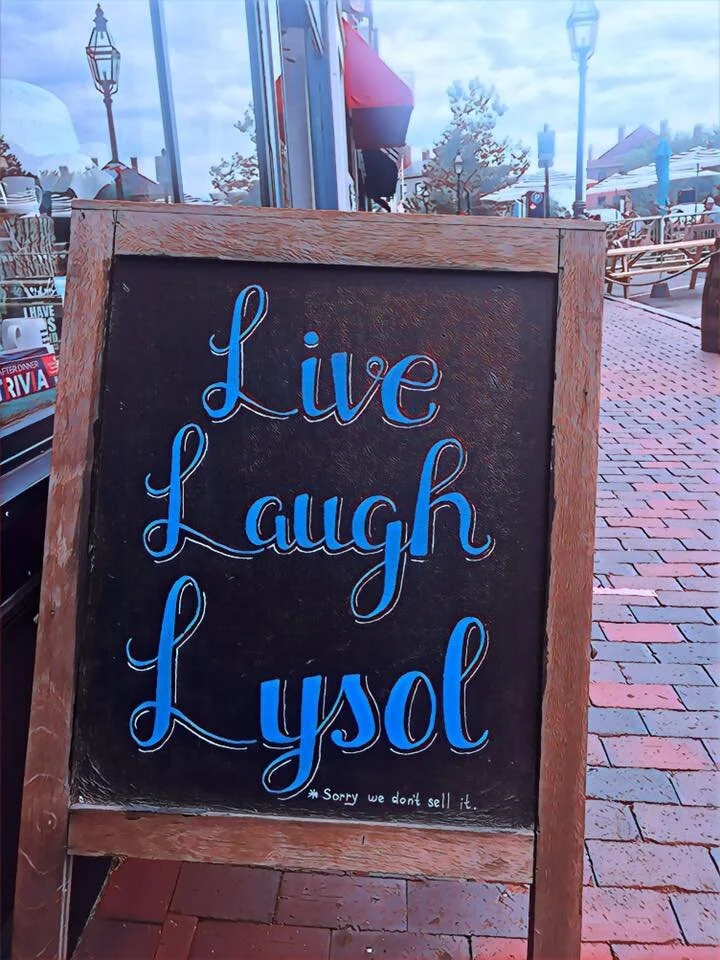 Live
Laugh
Lysol
* Sorry we don't sell it.
I HAVE
AFTER DINNER
TRIVIA